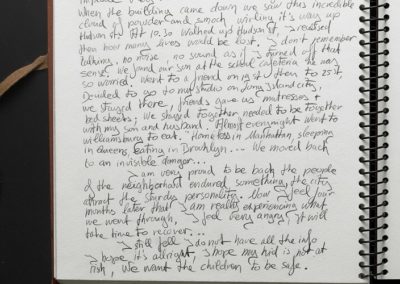 When the building came down we saw this incredible
cloud of powder and smoch wirling it's way up
Hudson st. At 10.30 walked up Hudson st, I realised
then how many lives would be lost. I don't remember
talking, no noise, no sound as if I turned off that
sense. We found our son at the school cafeteria he was
so worried. Went to a friend on 19 st then to 25 st,
Decided to go to my studio on Long Island city,
we stayed there, friends gave us matresses +
bed sheets; we stayed together needed to be together
with my son and husband. Almost every night went to
williamsburg to eat. Homeless in Manhattan, sleeping
in Queens, eating in Brooklyn... We moved back
to an invisible danger...
I am very proud to be back the people
of the neighborhood endured something, the city
almost the sturdy personality. Now I feel, four
months later that I am really experiencing what
we went through, I feel very angry, it will
take time to recover...
I still fell I do not have all the info
I hope it's allright, I hope my kid is not at
risk, we want the children to be safe.